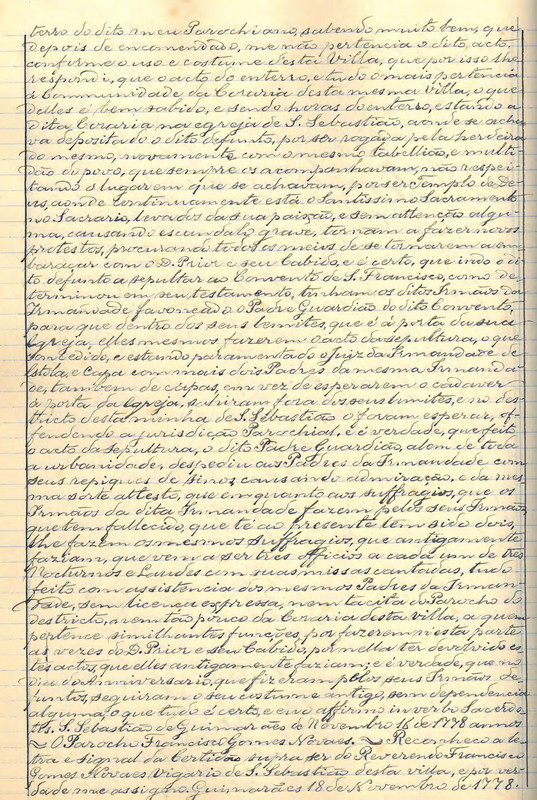 terro do dito meu Parochiano, sabendo muito bem, que
depois de encomendado, me não pertencia o dito acto,
conforme o uso e costume desta Villa, que por isso lhe
respondi, que o acto do enterro, e tudo o mais pertencia
á Communidade da Coraria desta mesma villa, o que
delles é bem sabido, e sendo horas do enterro, estando a
dita Coraria na egreja de S. Sebastião, aonde se acha-
va depositado o dito defunto, por ser rogada pela herdeira
do mesmo, novamente com o mesmo tabellião, e multi-
dão do povo, que sempre os acompanhavam, não respei-
tando o lugar em que se achavam, por ser Templo de De-
us, aonde continuamente está o Santissimo Sacramento
no Sacrario, levados da sua paixão, e sem attenção algu-
ma, causando escandalo grave, tornam a fazer novos
protestos, procurando todos os meios de se tornarem a em-
baraçar com o D. Prior e seu Cabido, e é certo, que indo o di-
to defunto a sepultar ao Convento de S. Francisco, como de-
terminou em seu testamento, tinham os ditos Irmãos da
Irmandade fallado ao Padre Guardião do dito Convento,
para que dentro dos seus limites, que é á porta da sua
Igreja, elles mesmos fazerem o acto da sepultura, o que
concedido, e estando paramentado o Juiz da Irmandade de
Estola, e Capa com mais dois Padres da mesma Irmanda-
de, tambem de capas, em vez de esperarem o cadaver
á porta da Igreja, sahiram fora dos seus limites, e no des-
tricto desta minha de S. Sebastião o foram esperar, of-
fendendo a jurisdicção Parochial, e é verdade, que feito
o acto da sepultura, o dito Padre Guardião, alem de toda
a urbanidade, despediu aos Padres da Irmandade com
seus repiques de sinos, causando admiração, e da mes-
ma sorte attesto, que emquanto aos suffragios, que os
Irmãos da dita Irmandade fazem pelos seus Irmãos
que tem fallecido, que té ao presente têm sido dois,
lhe fazem os mesmos suffragios, que antigamente
faziam, que vem a ser três Officios a cada um de tres
Nocturnos e Laudes com suas missas cantadas, tudo
feito com assistencia dos mesmos Padres da Irman-
dade, sem licença expressa, nem tacita do Parocho do
destricto, nem tão pouco da Coraria desta villa, a quem
pertence similhantes funcções, por fazerem nesta parte
as vezes do D. Prior e seu Cabido, por nella ter devolvido es-
tes actos, que elles antigamente faziam; e é verdade, que no
dia do Anniversario, que fizeram pelos seus Irmãos de-
funtos, seguiram o seu costume antigo, sem dependencia
alguma, o que tudo é certo, e eu o affirmo in verbo Sacerdo-
tis. S. Sebastião de Guimarães de Novembro 16 de 1778 annos
~ O Parocho Francisco Gomes Novaes. ~ Reconheço a le-
tra e signal da Certidão supra ser do Reverendo Francisco
Gomes Novaes Vigario de S. Sebastião desta villa, e por ver-
dade me assigno. Guimarães 18 de Novembro de 1778.